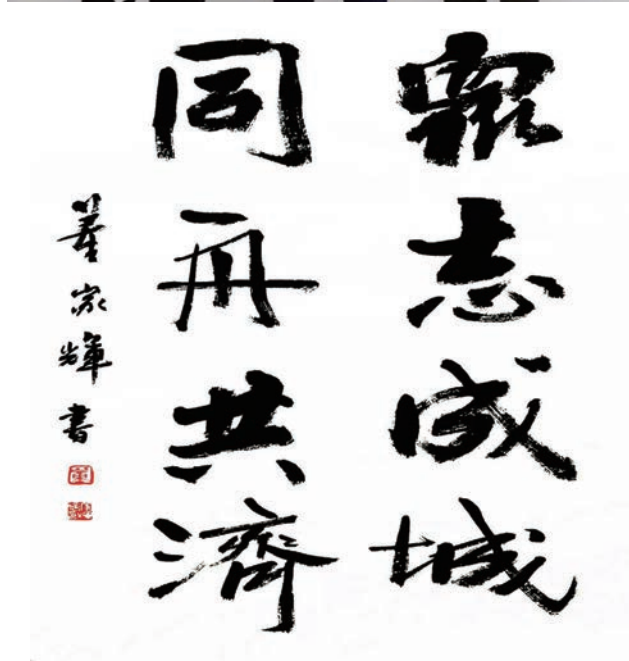 眾志成城
同舟共濟
董家輝書